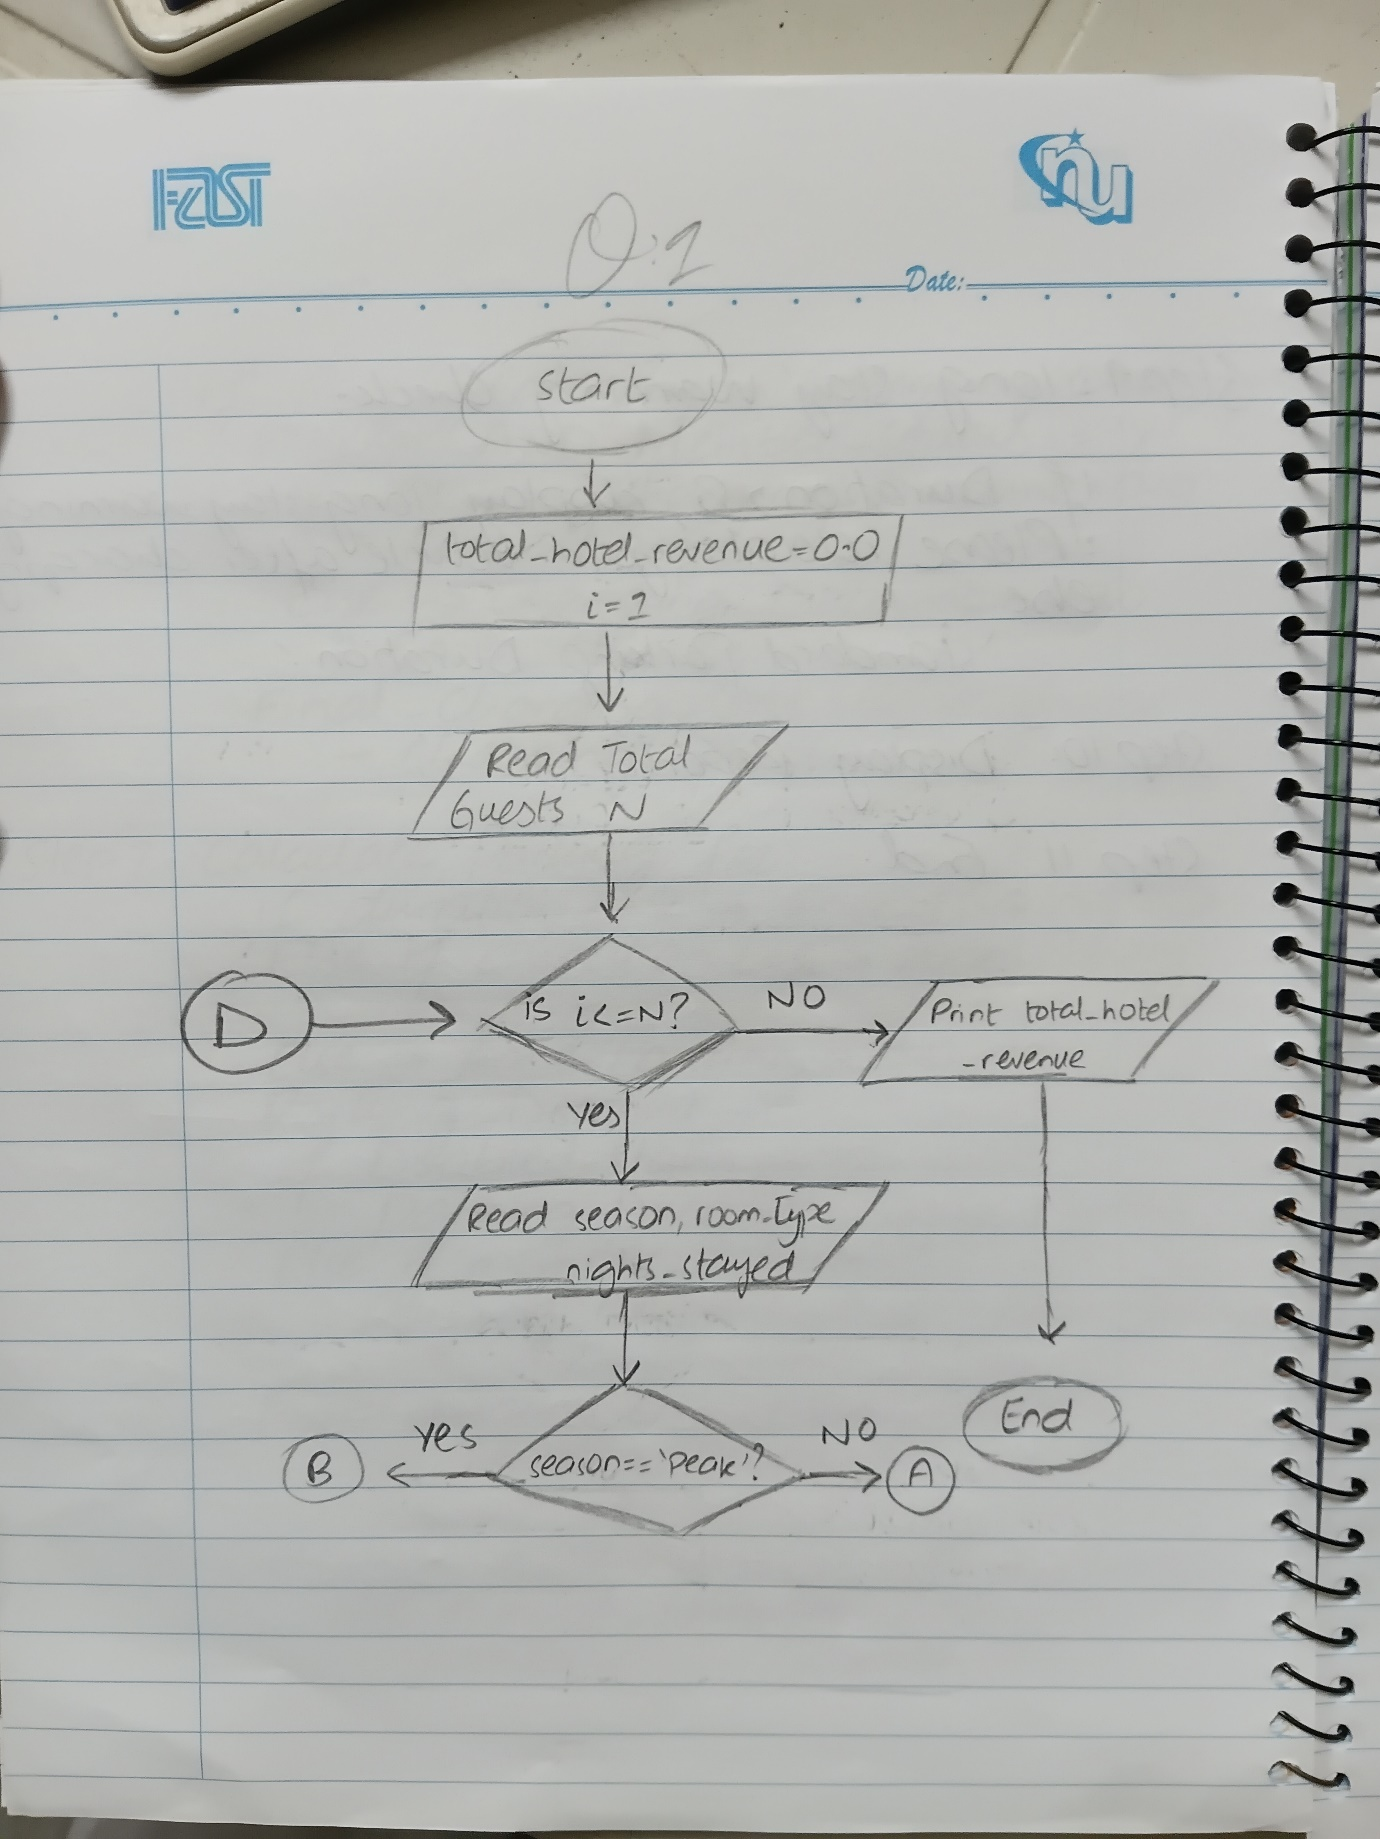 FAST
nu
Q:1
Date:
start
total_hotel_revenue=0.0
i=1
Read Total
Guests N
D
is i<=N?
NO
Print total_hotel
_revenue
Yes
Read season, room_type
nights_stayed
End
Yes
NO
B
season=='Peak'?
A